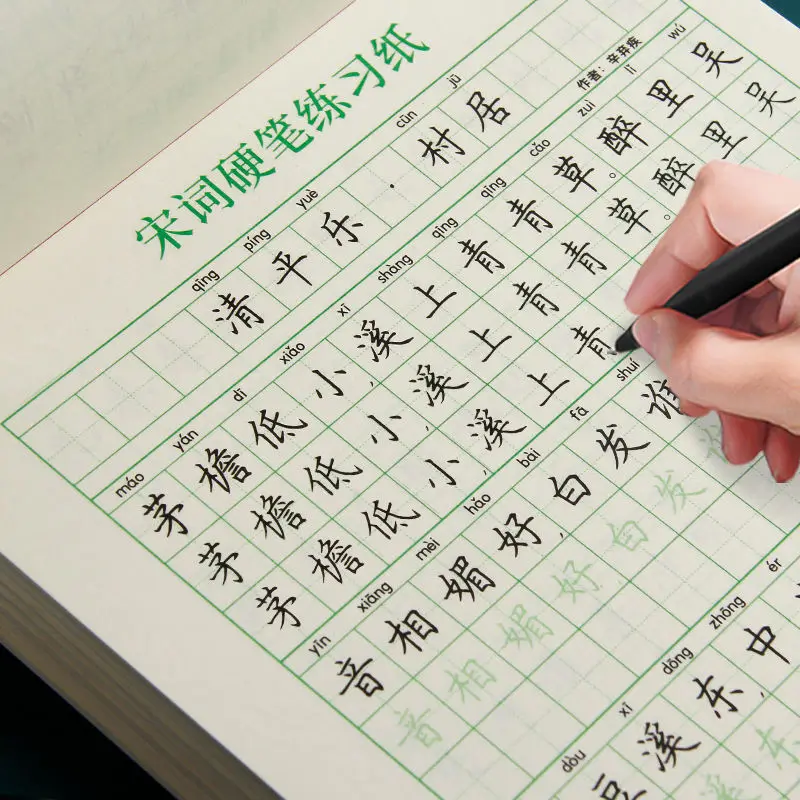 宋词硬笔练习纸
qīng píng yuè cūn jū
清平乐·村居
作者：辛弃疾
máo yán dī xiǎo xī shàng qīng qīng cǎo zuì lǐ wú
茅檐低小,溪上青青草。醉里吴
茅檐低小,溪上青青草。醉里吴
茅檐低小,溪上青
yīn xiāng mèi hǎo bái fā shuí
音相媚好,白发谁
音相媚好白发
dòu xī dōng zhōng ér
豆溪东,中
溪东